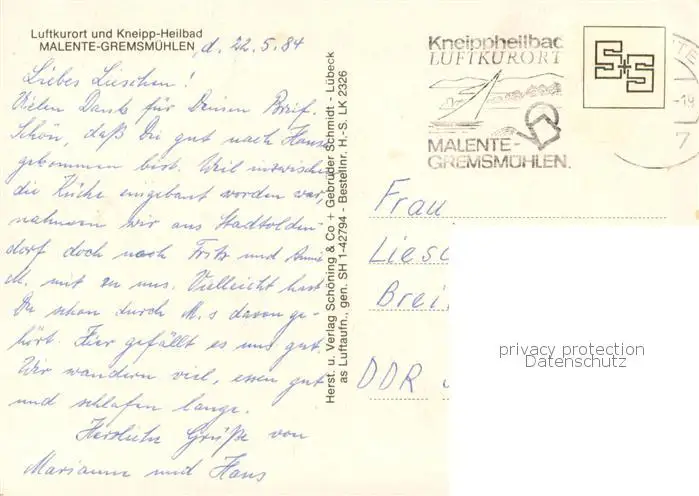 Luftkurort und Kneipp-Heilbad
MALENTE-GREMSMÜHLEN, d. 22.5.84
Liebes Lieschen!
Vielen Dank für Deinen Brief.
Schön, daß Du gut nach Hause
gekommen bist. Weil inzwischen
die Küche eingebaut worden war,
nahmen wir aus Stadtolden-
dorf doch noch Fritz und Anni
M. mit zu uns. Vielleicht hast
Du schon durch M.s davon ge-
hört. Hier gefällt es uns gut.
Wir wandern viel, essen gut
und schlafen lange.
Herzliche Grüße von
Marianne und Hans
Herst. u. Verlag Schöning & Co + Gebrüder Schmidt - Lübeck
as Luftaufn., gen. SH 1-42794 - Bestellnr. H.-S. LK 2326
Kneippheilbad
LUFTKURORT
MALENTE-
GREMSMÜHLEN.
S+S
TE
-18
7
Frau
Liesc
Brei
DDR
privacy protection
Datenschutz